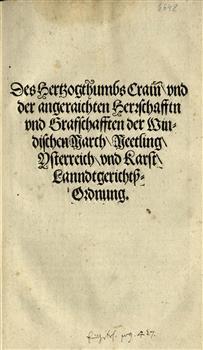 Des Hertzogthumbs Crain vnd
der angeraichten Herrschafftn
vnd Grafschafften der Win-
dischen March/ Meetling/
Ysterreich vnd Karst/
Lanndtgerichtß-
Ordnung.